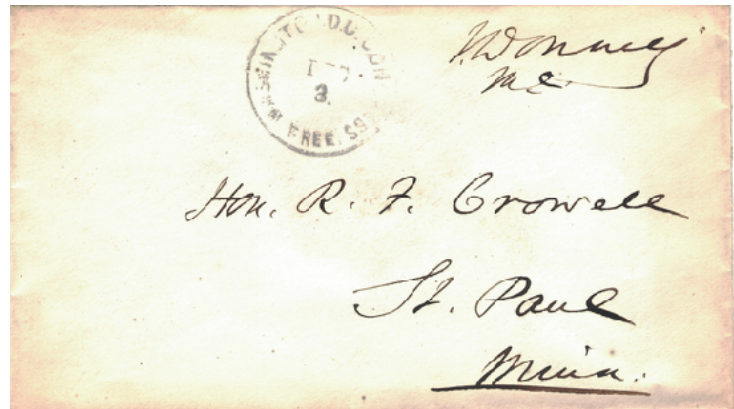 WASHINGTON D.C.
3
FREE
I. Donnelly
M.C.
Hon. R. F. Crowell
St. Paul
Minn.